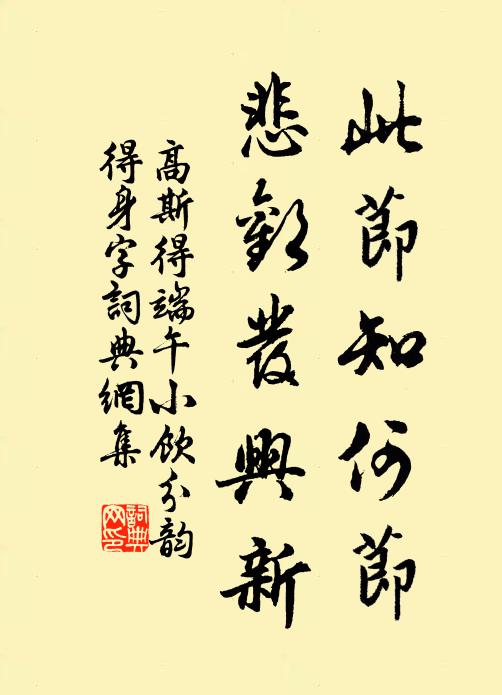 此節知何節
悲歡發興新
高斯得端午小飲分韵
得身字詞典網集
詞典網印